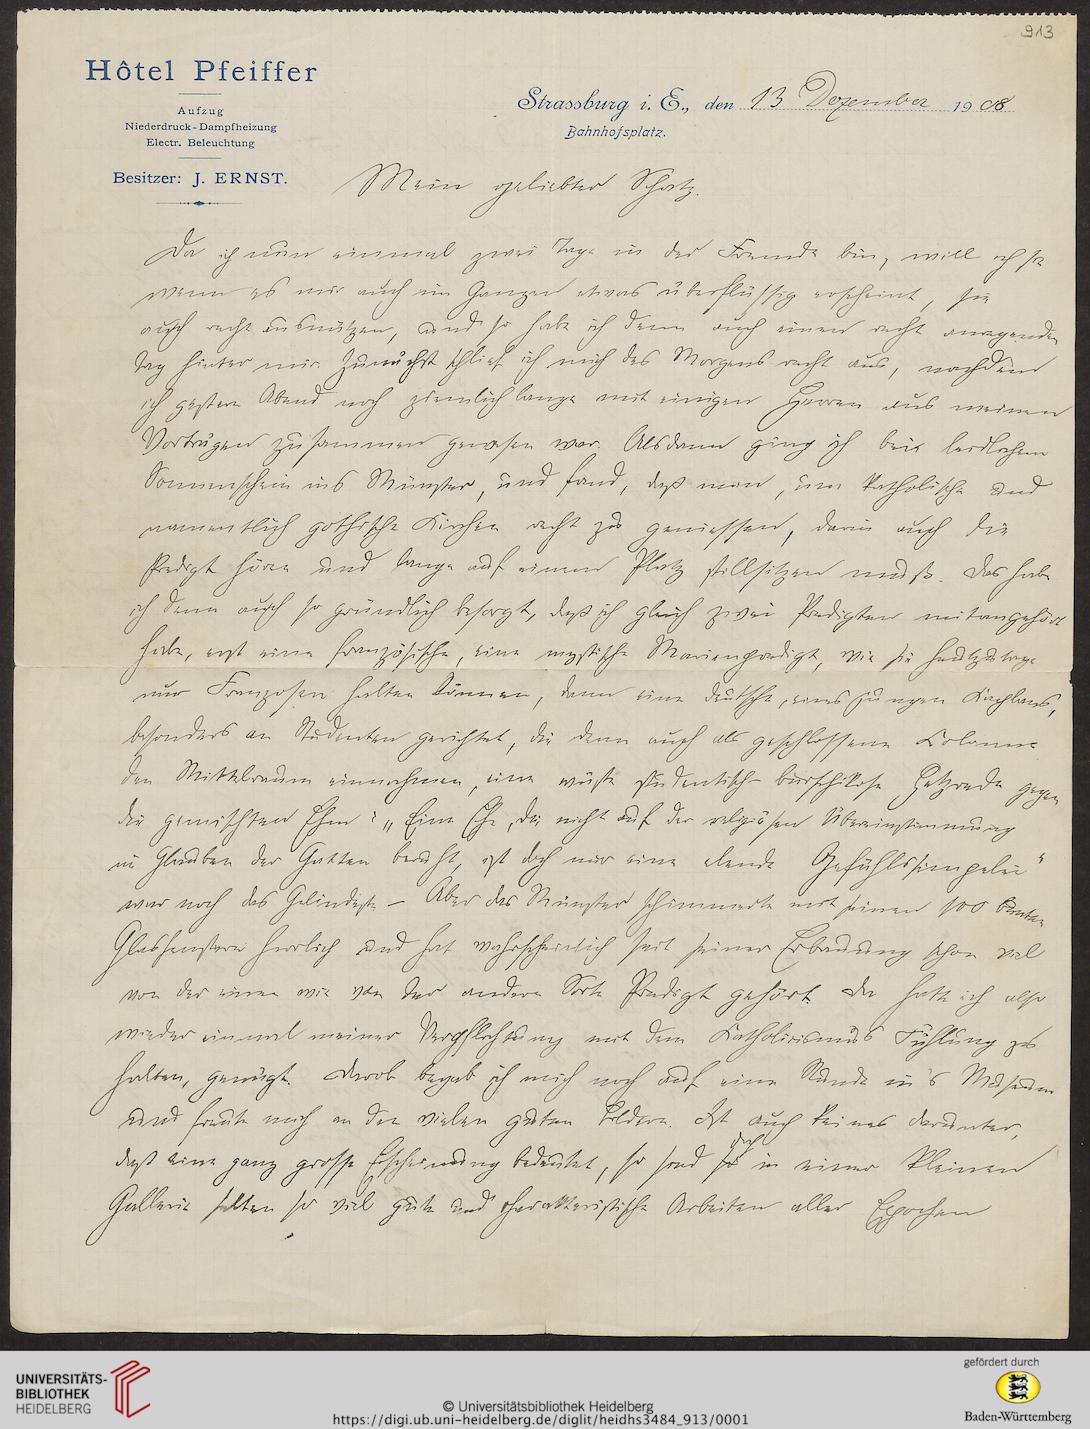 913
Hôtel Pfeiffer
Aufzug
Niederdruck-Dampfheizung
Electr. Beleuchtung
Besitzer: J. ERNST.
Strassburg i. E., den 13 Dezember 1908
Bahnhofsplatz.
Mein geliebter Schatz.
Da ich nun einmal zwei Tage in der Fremde bin, will ich sie
wenn es mir auch im Ganzen etwas überflüssig erscheint, sie
auch recht ausnützen, und so habe ich denn auch einen recht anregenden
Tag hinter mir. Zunächst schlief ich mich des Morgens recht aus, nachdem
ich gestern Abend noch ziemlich lange mit einigen Herren aus meinen
Vorträgen zusammen gewesen war. Alsdann ging ich bei leidlichem
Sonnenschein ins Münster, und fand, daß man, um katholische und
namentlich gothische Kirchen recht zu geniessen, darin auch die
Predigt hören und lange auf einem Platz stillsitzen muß. Das habe
ich denn auch so gründlich besorgt, daß ich gleich zwei Predigten mitangehört
habe, erst eine französische, eine mystische Marienpredigt, wie sie heutzutage
nur Franzosen halten können, dann eine deutsche, eines jungen Kaplans,
besonders an Studenten gerichtet, die denn auch als geschlossene Kolonne
den Mittelraum einnahmen, eine wüste studentisch-burschikose Hetzrede gegen
die gemischten Ehen: „Eine Ehe, die nicht auf der religiösen Übereinstimmung
im Glauben der Gatten beruht, ist doch nur eine elende Gefühlssimpelei"
war noch das Gelindeste – Aber das Münster schimmerte mit seinen 100 bunten
Glasfenstern herrlich und hat wahrscheinlich seit seiner Erbauung schon viel
von der einen wie von der andern Sorte Predigt gehört. Da hatte ich also
wieder einmal meiner Verpflichtung mit dem Katholicismus Fühlung zu
halten, genügt. Darob begab ich mich noch auf eine Stunde in's Museum
und freute mich an den vielen guten Bildern. Ist auch keines darunter,
daß eine ganz grosse Erscheinung bedeutet, so sind ja doch in einer kleinen
Gallerie selten so viel gute und charakteristische Arbeiten aller Epochen
UNIVERSITÄTS-
BIBLIOTHEK
HEIDELBERG
© Universitätsbibliothek Heidelberg
https://digi.ub.uni-heidelberg.de/diglit/heidhs3484_913/0001
gefördert durch
Baden-Württemberg